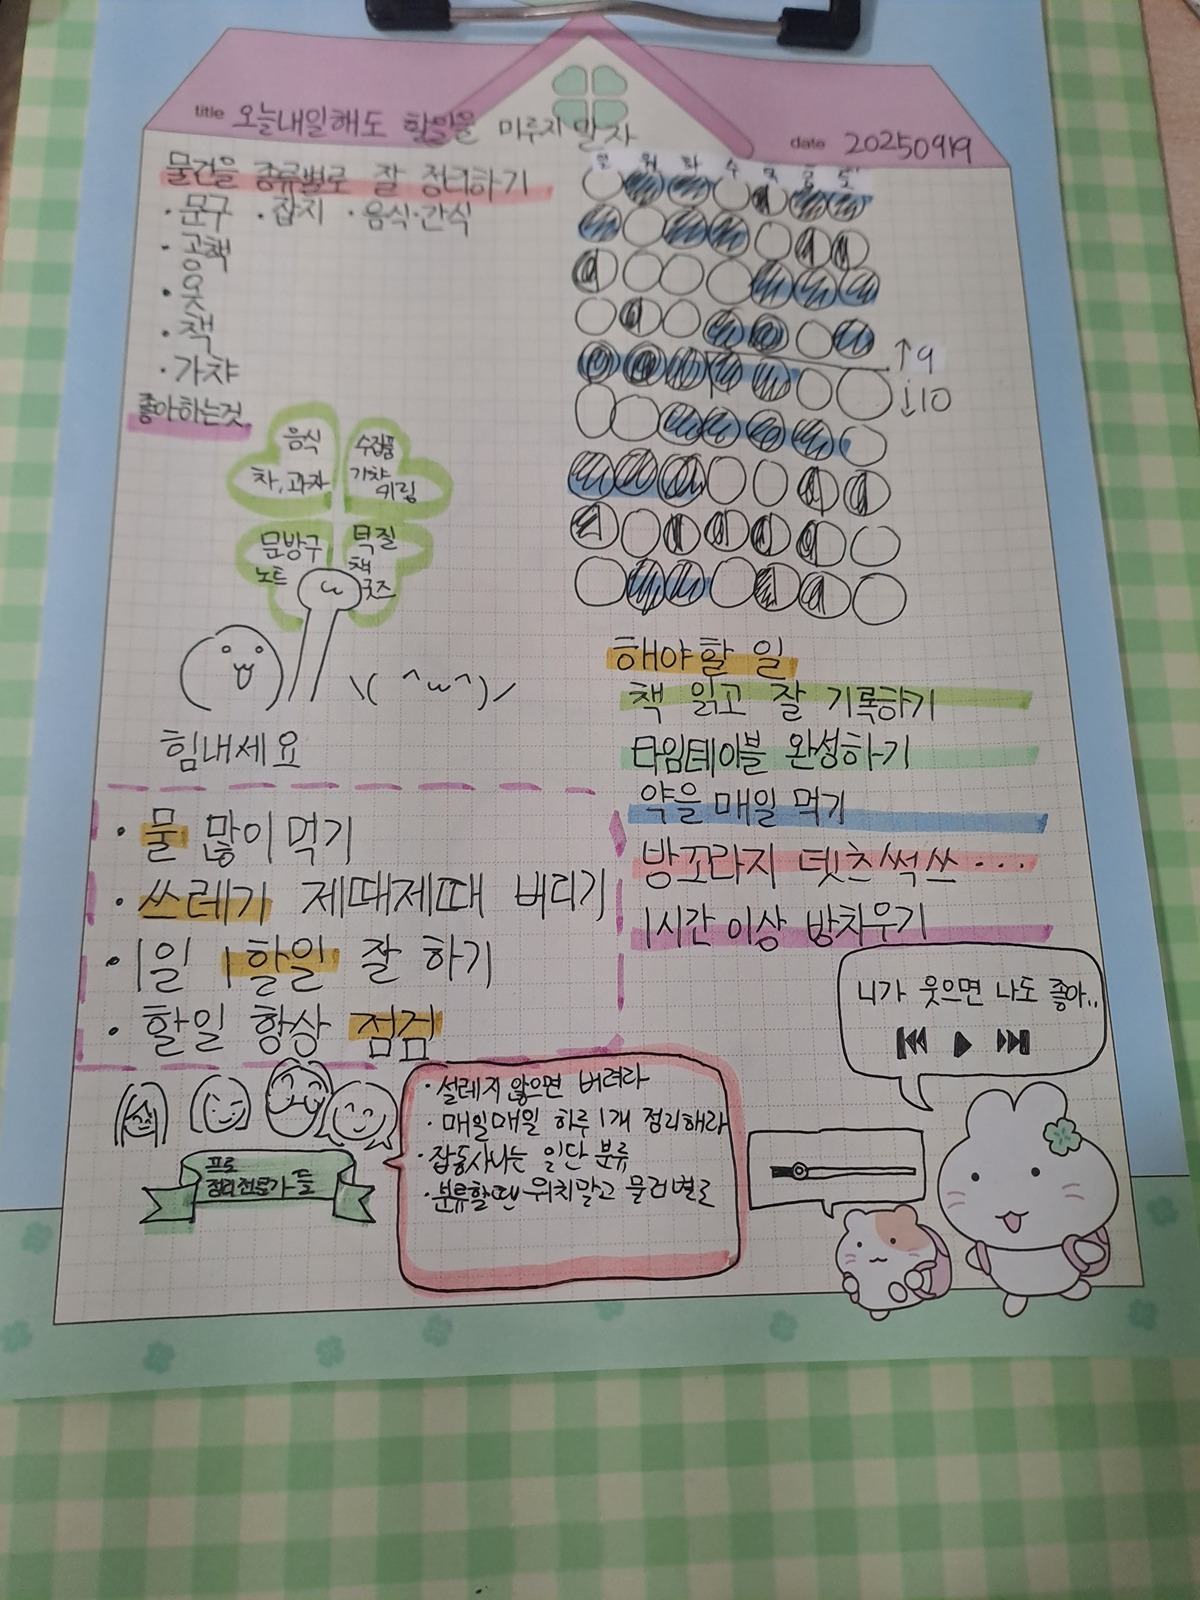 title 오늘내일해도 할일을 미루지 말자
date 20250919
물건을 종류별로 잘 정리하기
· 문구 · 잡지 · 음식·간식
· 공책
· 옷
· 책
· 가챠
좋아하는것
음식
차, 과자
수집품
가챠
키링
문방구
노트
덕질
책
굿즈
\( ^ω^)/
힘내세요
· 물 많이 먹기
· 쓰레기 제때제때 버리기
· 1일 1할일 잘 하기
· 할일 항상 점검
프로
정리전문가들
· 설레지 않으면 버려라
· 매일매일 하루 1개 정리해라
· 잡동사니는 일단 분류
· 분류할땐 위치말고 물건별로
월 화 수 목 금 토
↑9
↓10
해야할 일
책 읽고 잘 기록하기
타임테이블 완성하기
약을 매일 먹기
방꼬라지 뎃츠썩쓰 ···
1시간 이상 방치우기
니가 웃으면 나도 좋아..